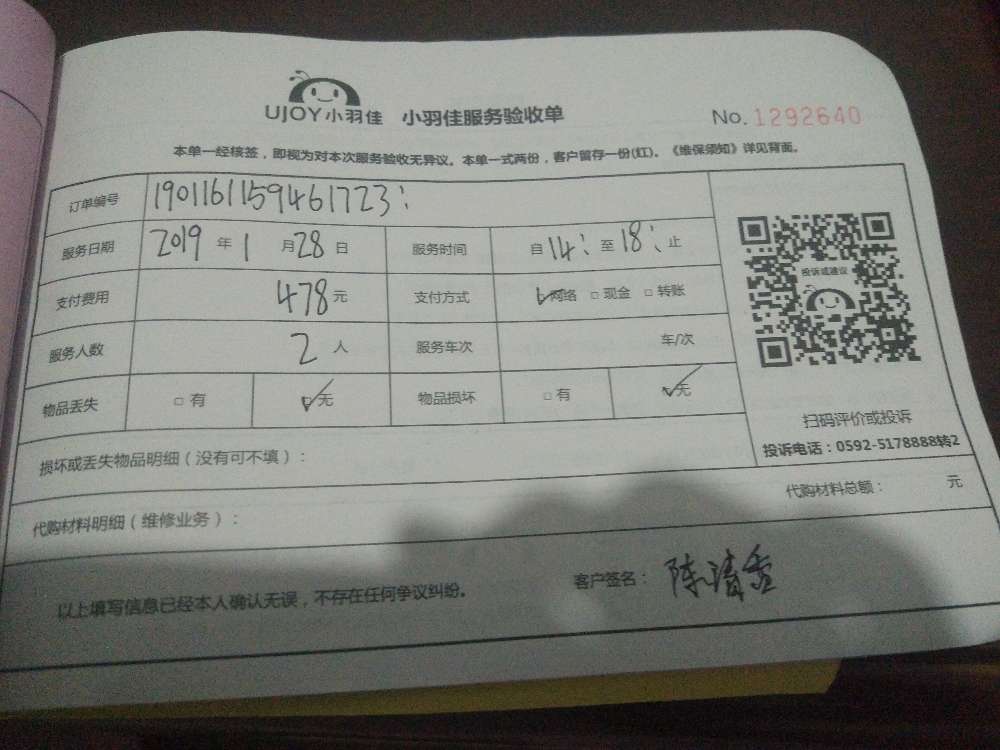 UJOY小羽佳 小羽佳服务验收单 No.1292640
本单一经核签，即视为对本次服务验收无异议。本单一式两份，客户留存一份(红)。《维保须知》详见背面。
订单编号 1901161159461723:
服务日期 2019 年 1 月 28 日 服务时间 自 14: 至 18: 止
投诉或建议
支付费用 478 元 支付方式 ☑网络 □现金 □转账
服务人数 2 人 服务车次 车/次
物品丢失 □有 ☑无 物品损坏 □有 ☑无
扫码评价或投诉
投诉电话：0592-5178888转2
损坏或丢失物品明细（没有可不填）：
代购材料明细（维修业务）： 代购材料总额： 元
以上填写信息已经本人确认无误，不存在任何争议纠纷。 客户签名： 陈清香